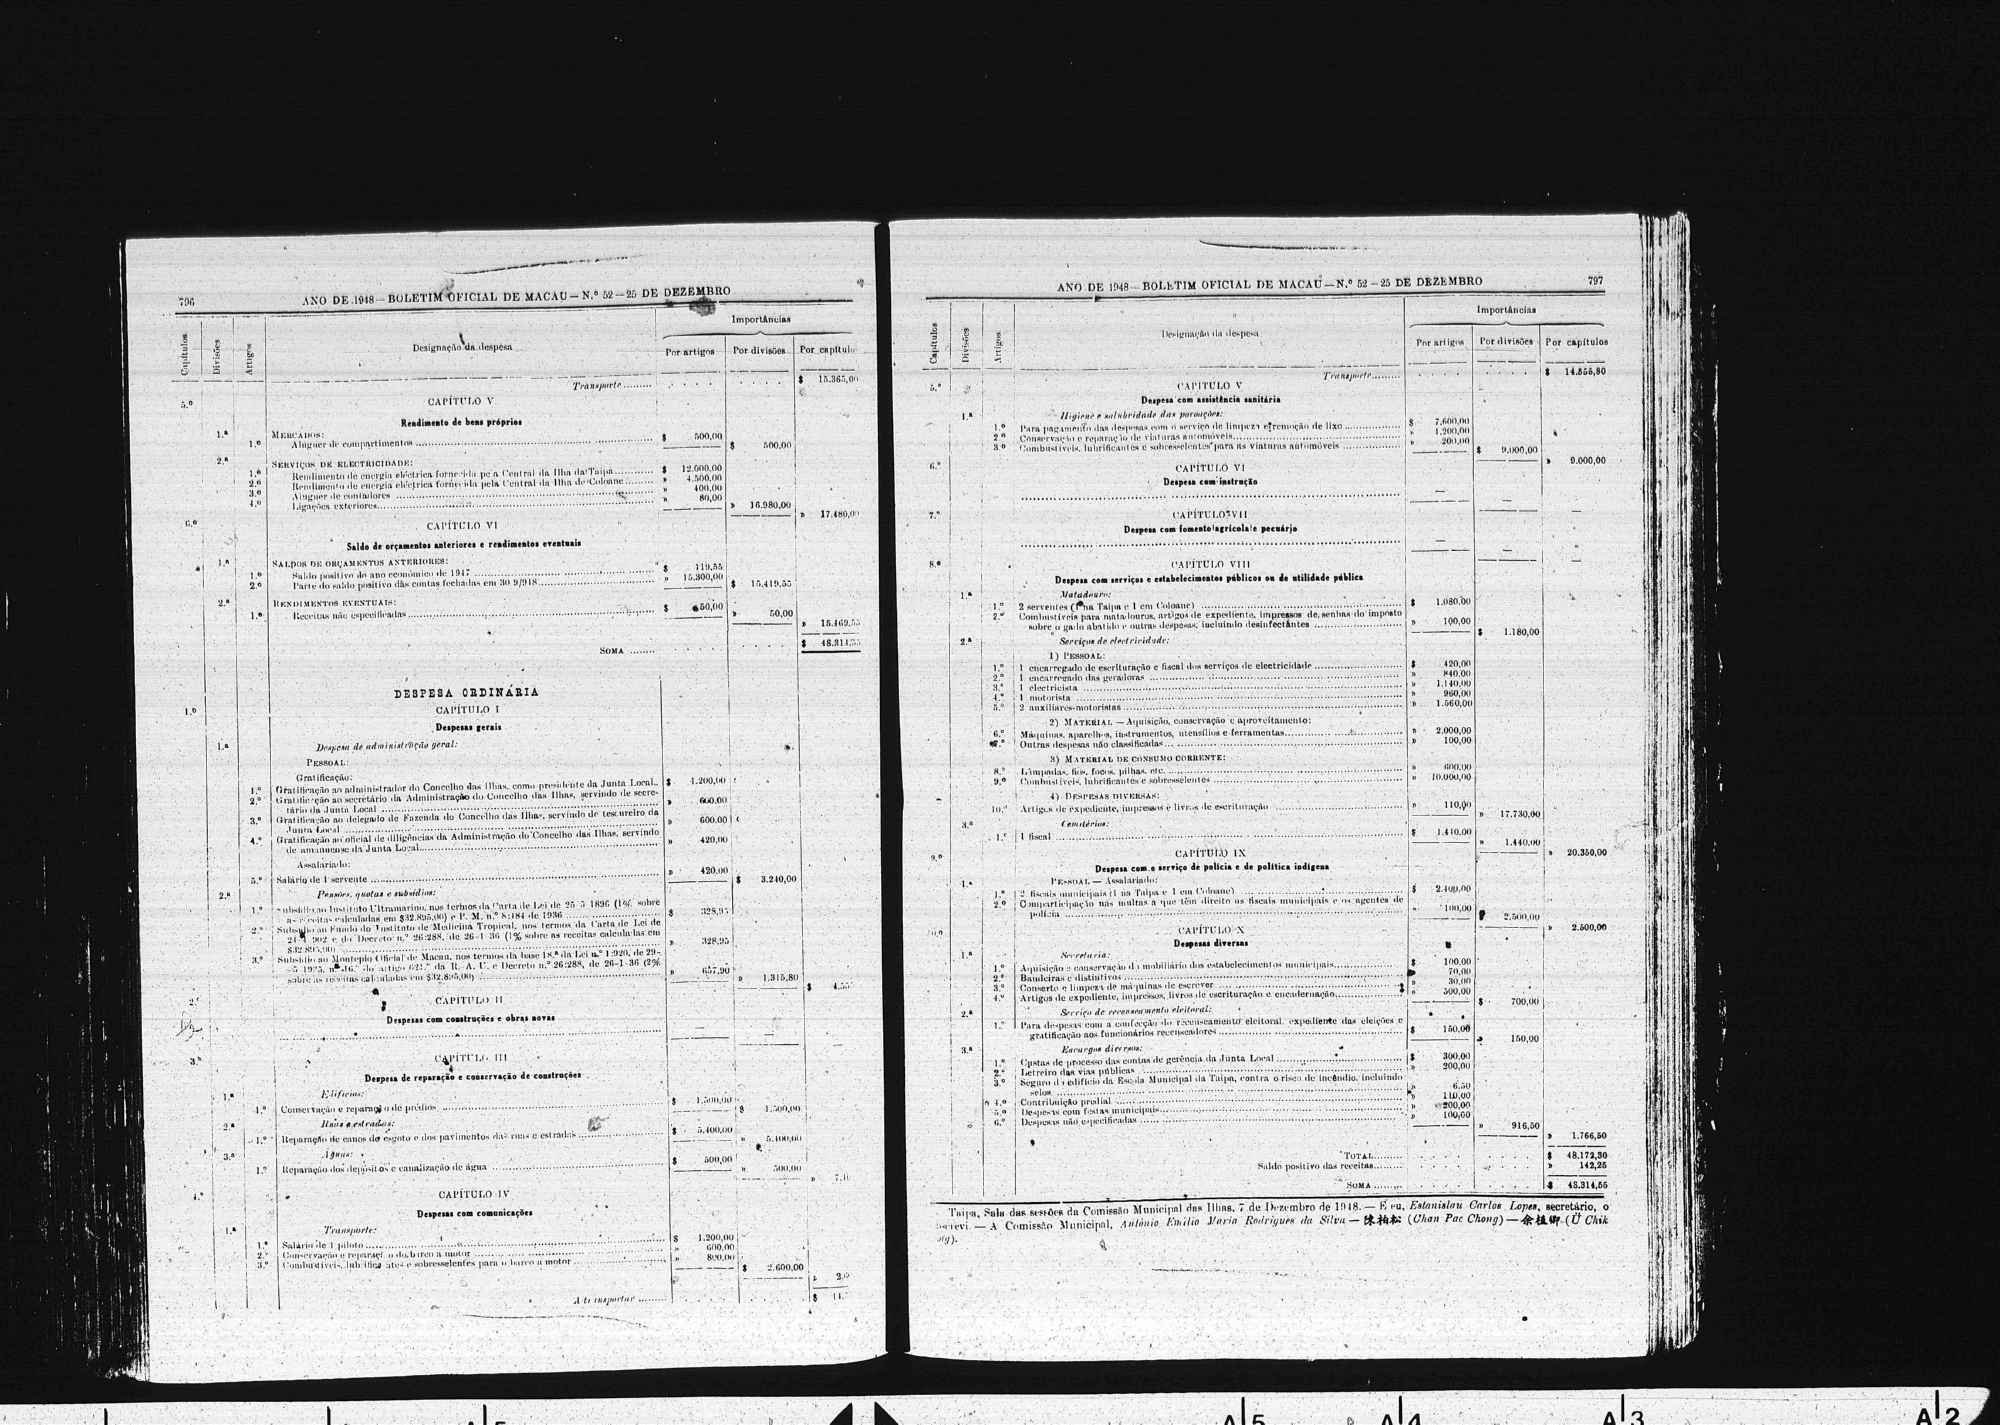 796
ANO DE 1948 — BOLETIM OFICIAL DE MACAU — N.º 52 — 25 DE DEZEMBRO
Capítulos Divisões Artigos Designação da despesa Importâncias
Por artigos Por divisões Por capítulo
Transporte ......... $ 15.365,00
5.º CAPÍTULO V
Rendimento de bens próprios
1.ª MERCADOS:
1.º Aluguer de compartimentos $ 500,00 $ 500,00
2.ª SERVIÇOS DE ELECTRICIDADE:
1.º Rendimento de energia eléctrica fornecida pela Central da Ilha da Taipa $ 12.000,00
2.º Rendimento de energia eléctrica fornecida pela Central da Ilha de Coloane » 4.500,00
3.º Aluguer de contadores » 400,00
4.º Ligações exteriores » 80,00 » 16.980,00
» 17.480,00
6.º CAPÍTULO VI
Saldo de orçamentos anteriores e rendimentos eventuais
1.ª SALDOS DE ORÇAMENTOS ANTERIORES:
1.º Saldo positivo do ano económico de 1947 $ 119,55
2.º Parte do saldo positivo das contas fechadas em 30/9/948 » 15.300,00 $ 15.419,55
2.ª RENDIMENTOS EVENTUAIS:
1.º Receitas não especificadas $ 50,00 » 50,00
» 15.469,55
SOMA ........ $ 48.314,55
DESPESA ORDINÁRIA
1.º CAPÍTULO I
Despesas gerais
1.ª Despesa de administração geral:
PESSOAL:
Gratificação:
1.º Gratificação ao administrador do Concelho das Ilhas, como presidente da Junta Local $ 1.200,00
2.º Gratificação ao secretário da Administração do Concelho das Ilhas, servindo de secre-
tário da Junta Local » 600,00
3.º Gratificação ao delegado de Fazenda do Concelho das Ilhas, servindo de tesoureiro da
Junta Local » 600,00
4.º Gratificação ao oficial de diligências da Administração do Concelho das Ilhas, servindo
de amanuense da Junta Local » 420,00
Assalariado:
5.º Salário de 1 servente » 420,00 $ 3.240,00
2.ª Pensões, quotas e subsídios:
1.º Subsídio ao Instituto Ultramarino, nos termos da Carta de Lei de 1896 (1% sobre
as receitas calculadas em $32.895,00) e P. M. n.º 8:484 de 1936 $ 328,95
2.º Subsídio ao Fundo do Instituto de Medicina Tropical, nos termos da Carta de Lei de
e do Decreto n.º 26:288, de 26-1-36 (1% sobre as receitas calculadas em
$32.895,00) » 328,95
3.º Subsídio ao Montepio Oficial de Macau, nos termos da base 18.ª da Lei n.º 1:920, de 29-
do artigo da R. A. U. e Decreto n.º 26:288, de 26-1-36 (2%
sobre as receitas calculadas em $32.895,00) » 657,90 » 1.315,80
$
2.º CAPÍTULO II
Despesas com construções e obras novas
— —
3.º CAPÍTULO III
Despesa de reparação e conservação de construções
1.ª Edifícios:
1.º Conservação e reparação de prédios $ 1.500,00 $ 1.500,00
2.ª Ruas e estradas:
1.º Reparação de canos de esgoto e dos pavimentos das ruas e estradas $ 5.400,00 » 5.400,00
3.ª Águas:
1.º Reparação dos depósitos e canalização de água $ 500,00 » 500,00
»
4.º CAPÍTULO IV
Despesas com comunicações
1.ª Transporte:
1.º Salário de 1 piloto $ 1.200,00
2.º Conservação e reparação do barco a motor » 600,00
3.º Combustíveis, lubrificantes e sobresselentes para o barco a motor » 800,00 $ 2.600,00
»
A transportar ......... $
ANO DE 1948 — BOLETIM OFICIAL DE MACAU — N.º 52 — 25 DE DEZEMBRO 797
Capítulos Divisões Artigos Designação da despesa Importâncias
Por artigos Por divisões Por capítulos
Transporte ......... $ 14.855,80
5.º CAPÍTULO V
Despesa com assistência sanitária
1.ª Higiene e salubridade das povoações:
1.º Para pagamento das despesas com o serviço de limpeza e remoção de lixo $ 7.600,00
2.º Conservação e reparação de viaturas automóveis » 1.200,00
3.º Combustíveis, lubrificantes e sobresselentes para as viaturas automóveis » 200,00 $ 9.000,00
» 9.000,00
6.º CAPÍTULO VI
Despesa com instrução
— — —
7.º CAPÍTULO VII
Despesa com fomento agrícola e pecuário
— — —
8.º CAPÍTULO VIII
Despesa com serviços e estabelecimentos públicos ou de utilidade pública
1.ª Matadouro:
1.º 2 serventes (1 na Taipa e 1 em Coloane) $ 1.080,00
2.º Combustíveis para matadouros, artigos de expediente, impressos de senhas do imposto
sobre o gado abatido e outras despesas, incluindo desinfectantes » 100,00 $ 1.180,00
2.ª Serviços de electricidade:
1) PESSOAL:
1.º 1 encarregado de escrituração e fiscal dos serviços de electricidade $ 420,00
2.º 1 encarregado das geradoras » 840,00
3.º 1 electricista » 1.140,00
4.º 1 motorista » 960,00
5.º 2 auxiliares-motoristas » 1.560,00
2) MATERIAL — Aquisição, conservação e aproveitamento:
6.º Máquinas, aparelhos, instrumentos, utensílios e ferramentas » 2.000,00
7.º Outras despesas não classificadas » 100,00
3) MATERIAL DE CONSUMO CORRENTE:
8.º Lâmpadas, fios, focos, pilhas, etc. » 600,00
9.º Combustíveis, lubrificantes e sobresselentes » 10.000,00
4) DESPESAS DIVERSAS:
10.º Artigos de expediente, impressos e livros de escrituração » 110,00 » 17.730,00
3.ª Cemitérios:
1.º 1 fiscal $ 1.440,00 » 1.440,00
» 20.350,00
9.º CAPÍTULO IX
Despesa com o serviço de polícia e de política indígena
1.ª PESSOAL — Assalariado:
1.º 2 fiscais municipais (1 na Taipa e 1 em Coloane) $ 2.400,00
2.º Comparticipação nas multas a que têm direito os fiscais municipais e os agentes de
polícia » 100,00 $ 2.500,00
» 2.500,00
10.º CAPÍTULO X
Despesas diversas
1.ª Secretaria:
1.º Aquisição e conservação do mobiliário dos estabelecimentos municipais $ 100,00
2.º Bandeiras e distintivos » 70,00
3.º Conserto e limpeza de máquinas de escrever » 30,00
4.º Artigos de expediente, impressos, livros de escrituração e encadernação » 500,00 $ 700,00
2.ª Serviço de recenseamento eleitoral:
1.º Para despesas com a confecção do recenseamento eleitoral, expediente das eleições e
gratificação aos funcionários recenseadores $ 150,00 » 150,00
3.ª Encargos diversos:
1.º Custas de processo das contas de gerência da Junta Local $ 300,00
2.º Letreiro das vias públicas » 200,00
3.º Seguro do edifício da Escola Municipal da Taipa, contra o risco de incêndio, incluindo
selos » 6,50
4.º Contribuição predial » 110,00
5.º Despesas com festas municipais » 200,00
6.º Despesas não especificadas » 100,00 » 916,50
» 1.766,50
TOTAL ........ $ 48.172,30
Saldo positivo das receitas ........ » 142,25
SOMA ........ $ 48.314,55
Taipa, Sala das sessões da Comissão Municipal das Ilhas, 7 de Dezembro de 1948. — E eu, Estanislau Carlos Lopes, secretário, o
escrevi. — A Comissão Municipal, António Emílio Maria Rodrigues da Silva — 陳柏松 (Chan Pac Chong) — 余植卿 (Ü Chik